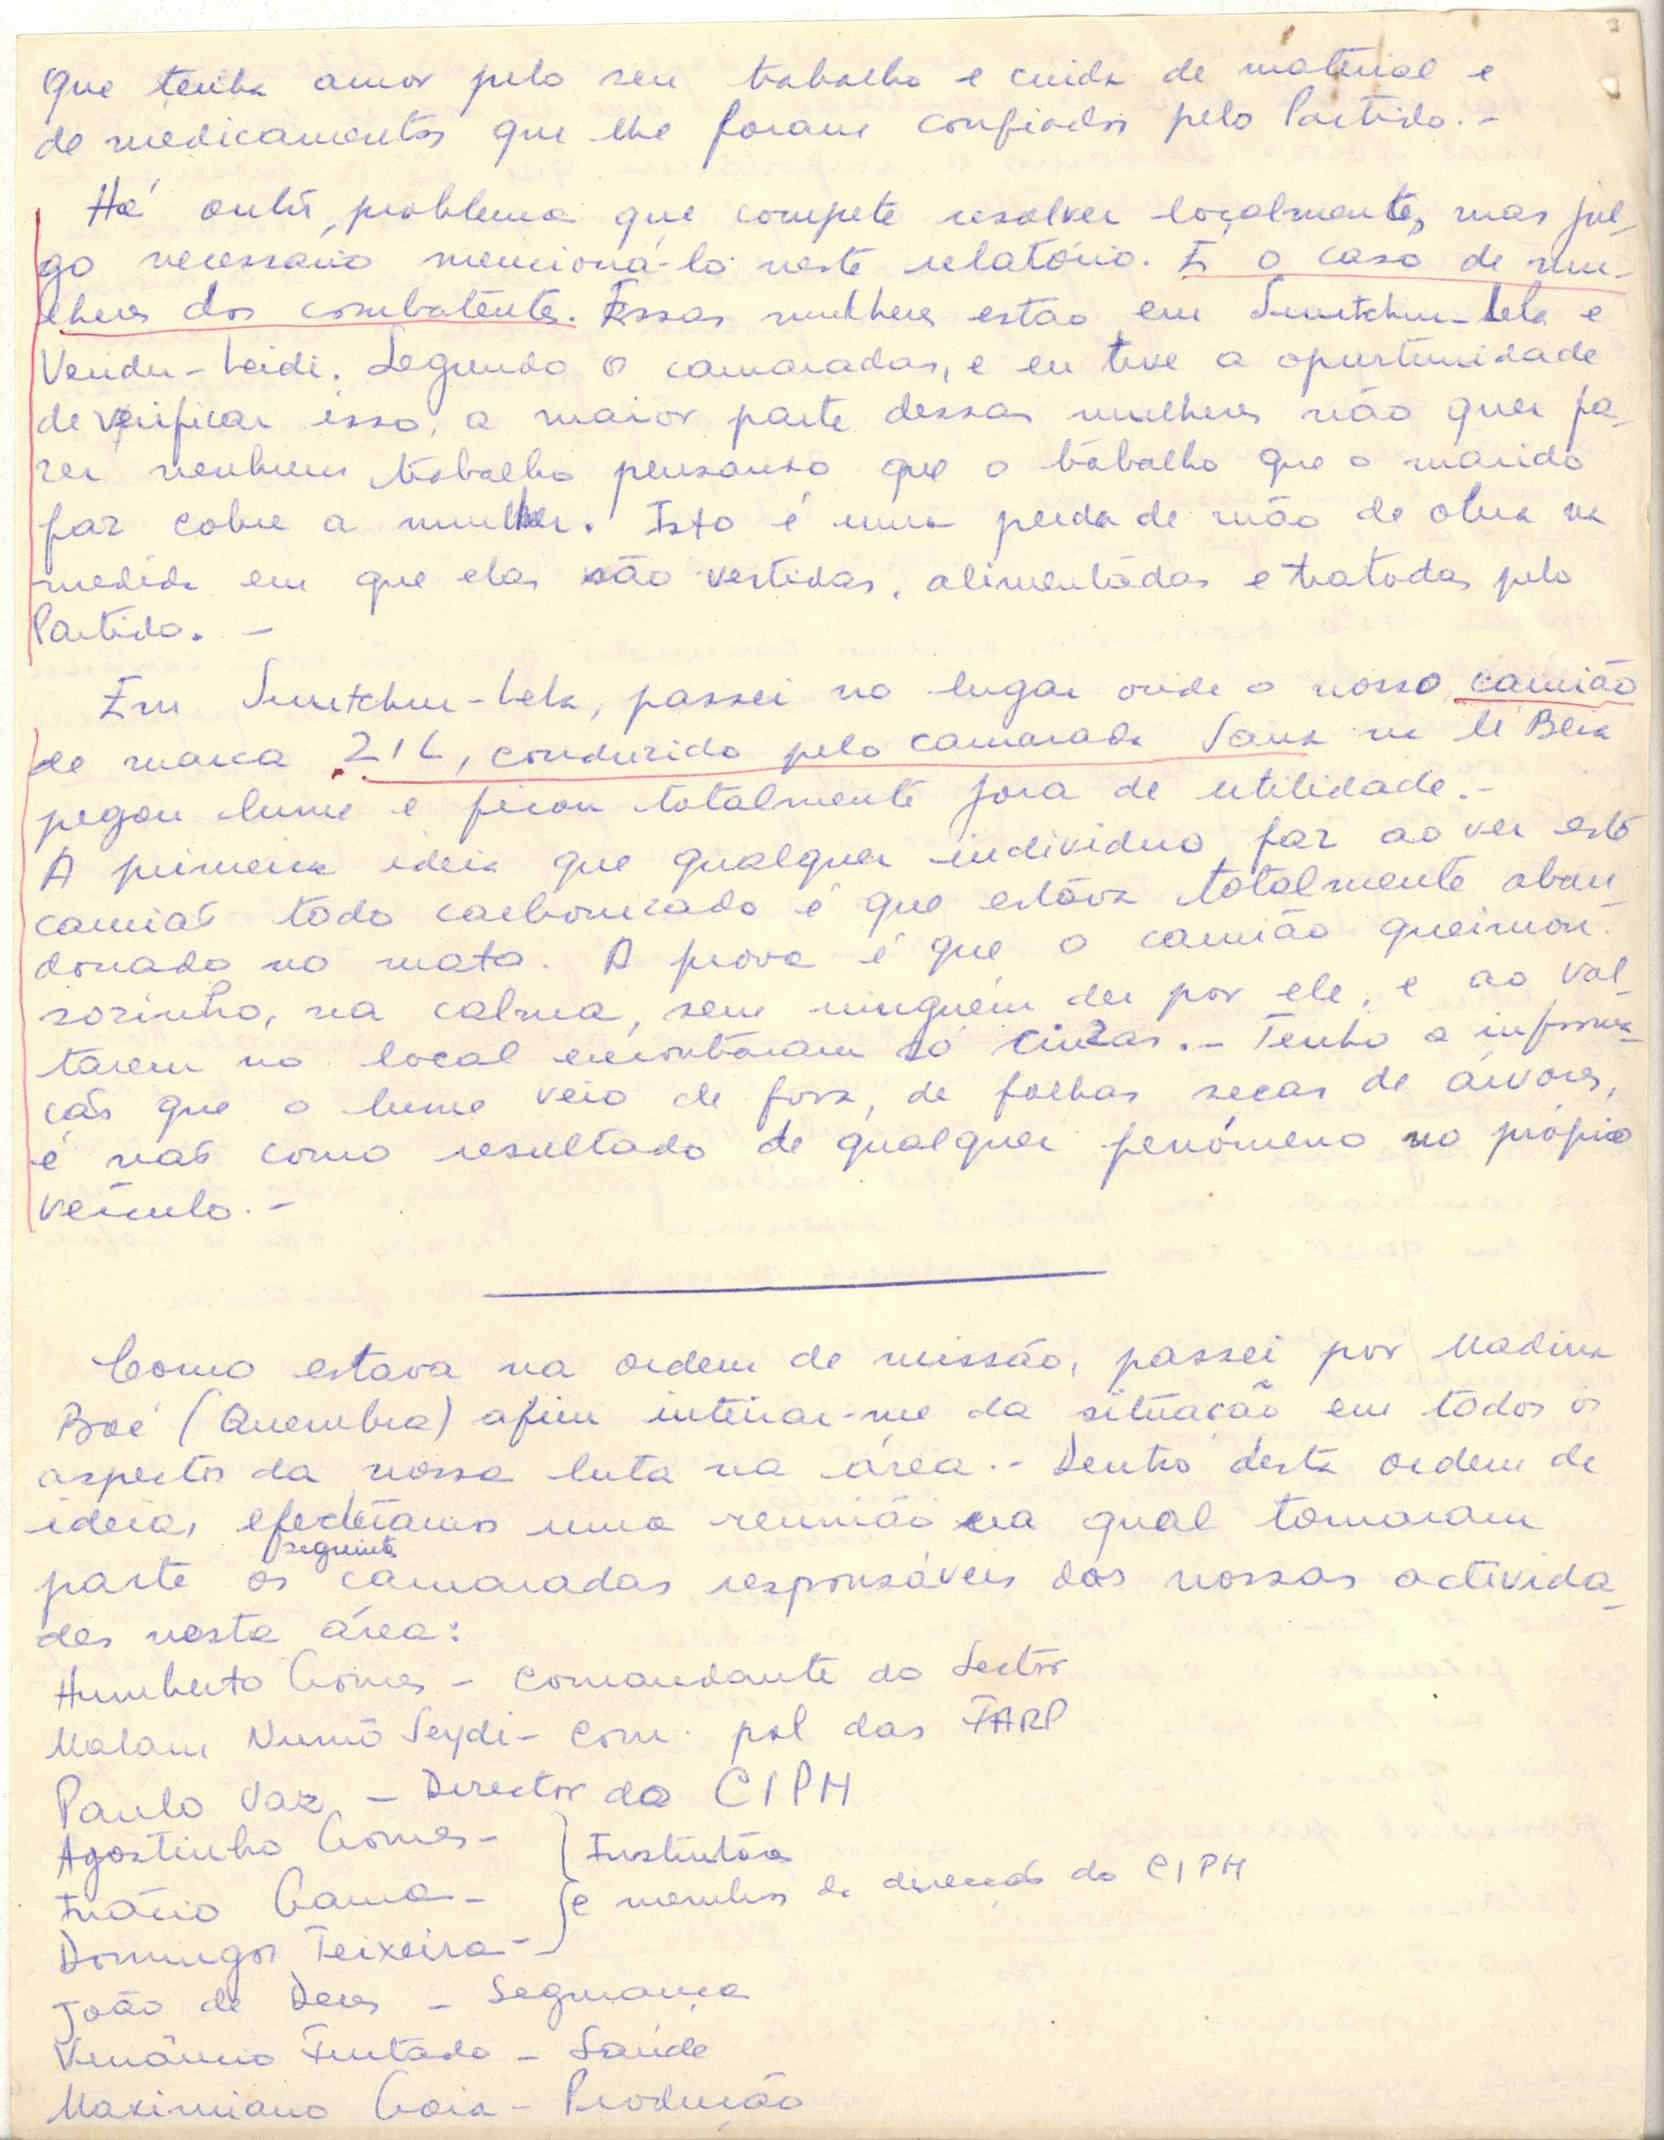 Que tenha amor pelo seu trabalho e cuida de material e
de medicamentos que lhe foram confiados pelo Partido.-
Há outro problema que compete resolver localmente, mas jul-
go necessário mencioná-lo neste relatório. É o caso de mu-
lheres dos combatentes. Essas mulheres estão em e
Vendu-Leidi. Segundo os camaradas, e eu tive a oportunidade
de verificar isso, a maior parte dessas mulheres não quer fa-
zer nenhum trabalho pensando que o trabalho que o marido
faz cobre a mulher. Isto é uma perda de mão de obra na
medida em que elas são vestidas, alimentadas e tratadas pelo
Partido. -
Em passei no lugar onde o nosso camião
de marca ZIL, conduzido pelo camarada Sana na M'Bera
pegou lume e ficou totalmente fora de utilidade.-
A primeira ideia que qualquer individuo faz ao ver este
camião todo carbonizado é que estava totalmente aban-
donado no mato. A prova é que o camião queimou
sozinho, na calma, sem ninguém der por ele, e ao vol-
tarem no local encontraram só cinzas.- Tenho a informa-
ção que o lume veio de fora, de folhas secas de árvores,
e não como resultado de qualquer fenómeno no próprio
veículo.-
Como estava na ordem de missão, passei por Madina
Boé (Quembra) afim inteirar-me da situação em todos os
aspectos da nossa luta na área.- Dentro desta ordem de
ideias efectuámos uma reunião na qual tomaram
parte os seguintes camaradas responsáveis das nossas activida-
des nesta área:
Humberto Gomes - Comandante do Sector
Malam Numô Seydi - Com. pol das FARP
Paulo Vaz - Director do CIPM
Agostinho Gomes -
Inácio Gama -
Domingos Teixeira -
} Instrutores
e membros da direcção do CIPM
João de Deus - Segurança
Venâncio Furtado - Saúde
Maximiano - Produção